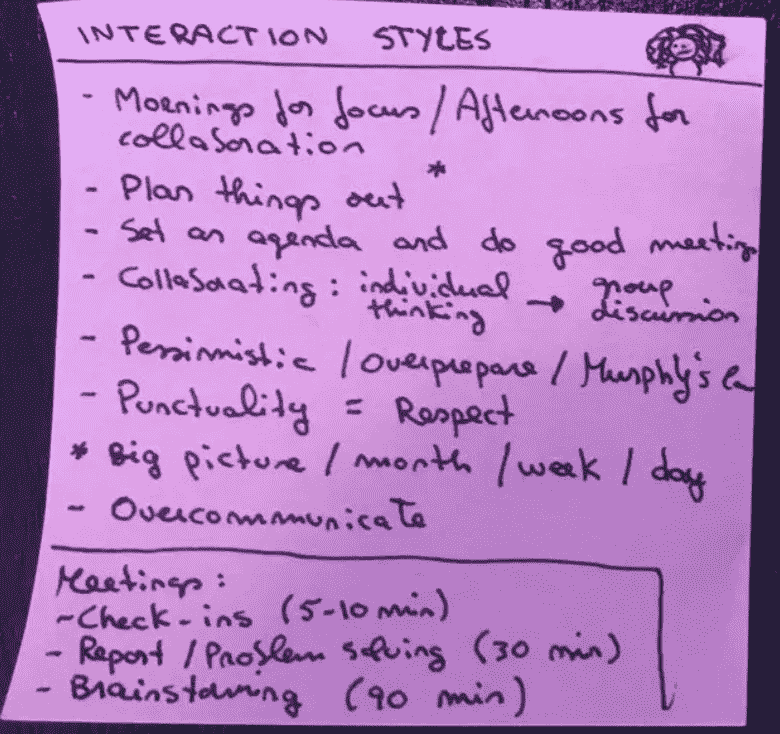 INTERACTION STYLES
- Mornings for focus / Afternoons for
collaboration
- Plan things out *
- Set an agenda and do good meetings
- Collaborating : individual thinking → group discussion
- Pessimistic / Overprepare / Murphy's law
- Punctuality = Respect
* Big picture / month / week / day
- Overcommunicate
Meetings :
- Check-ins (5-10 min)
- Report / Problem solving (30 min)
- Brainstorming (90 min)